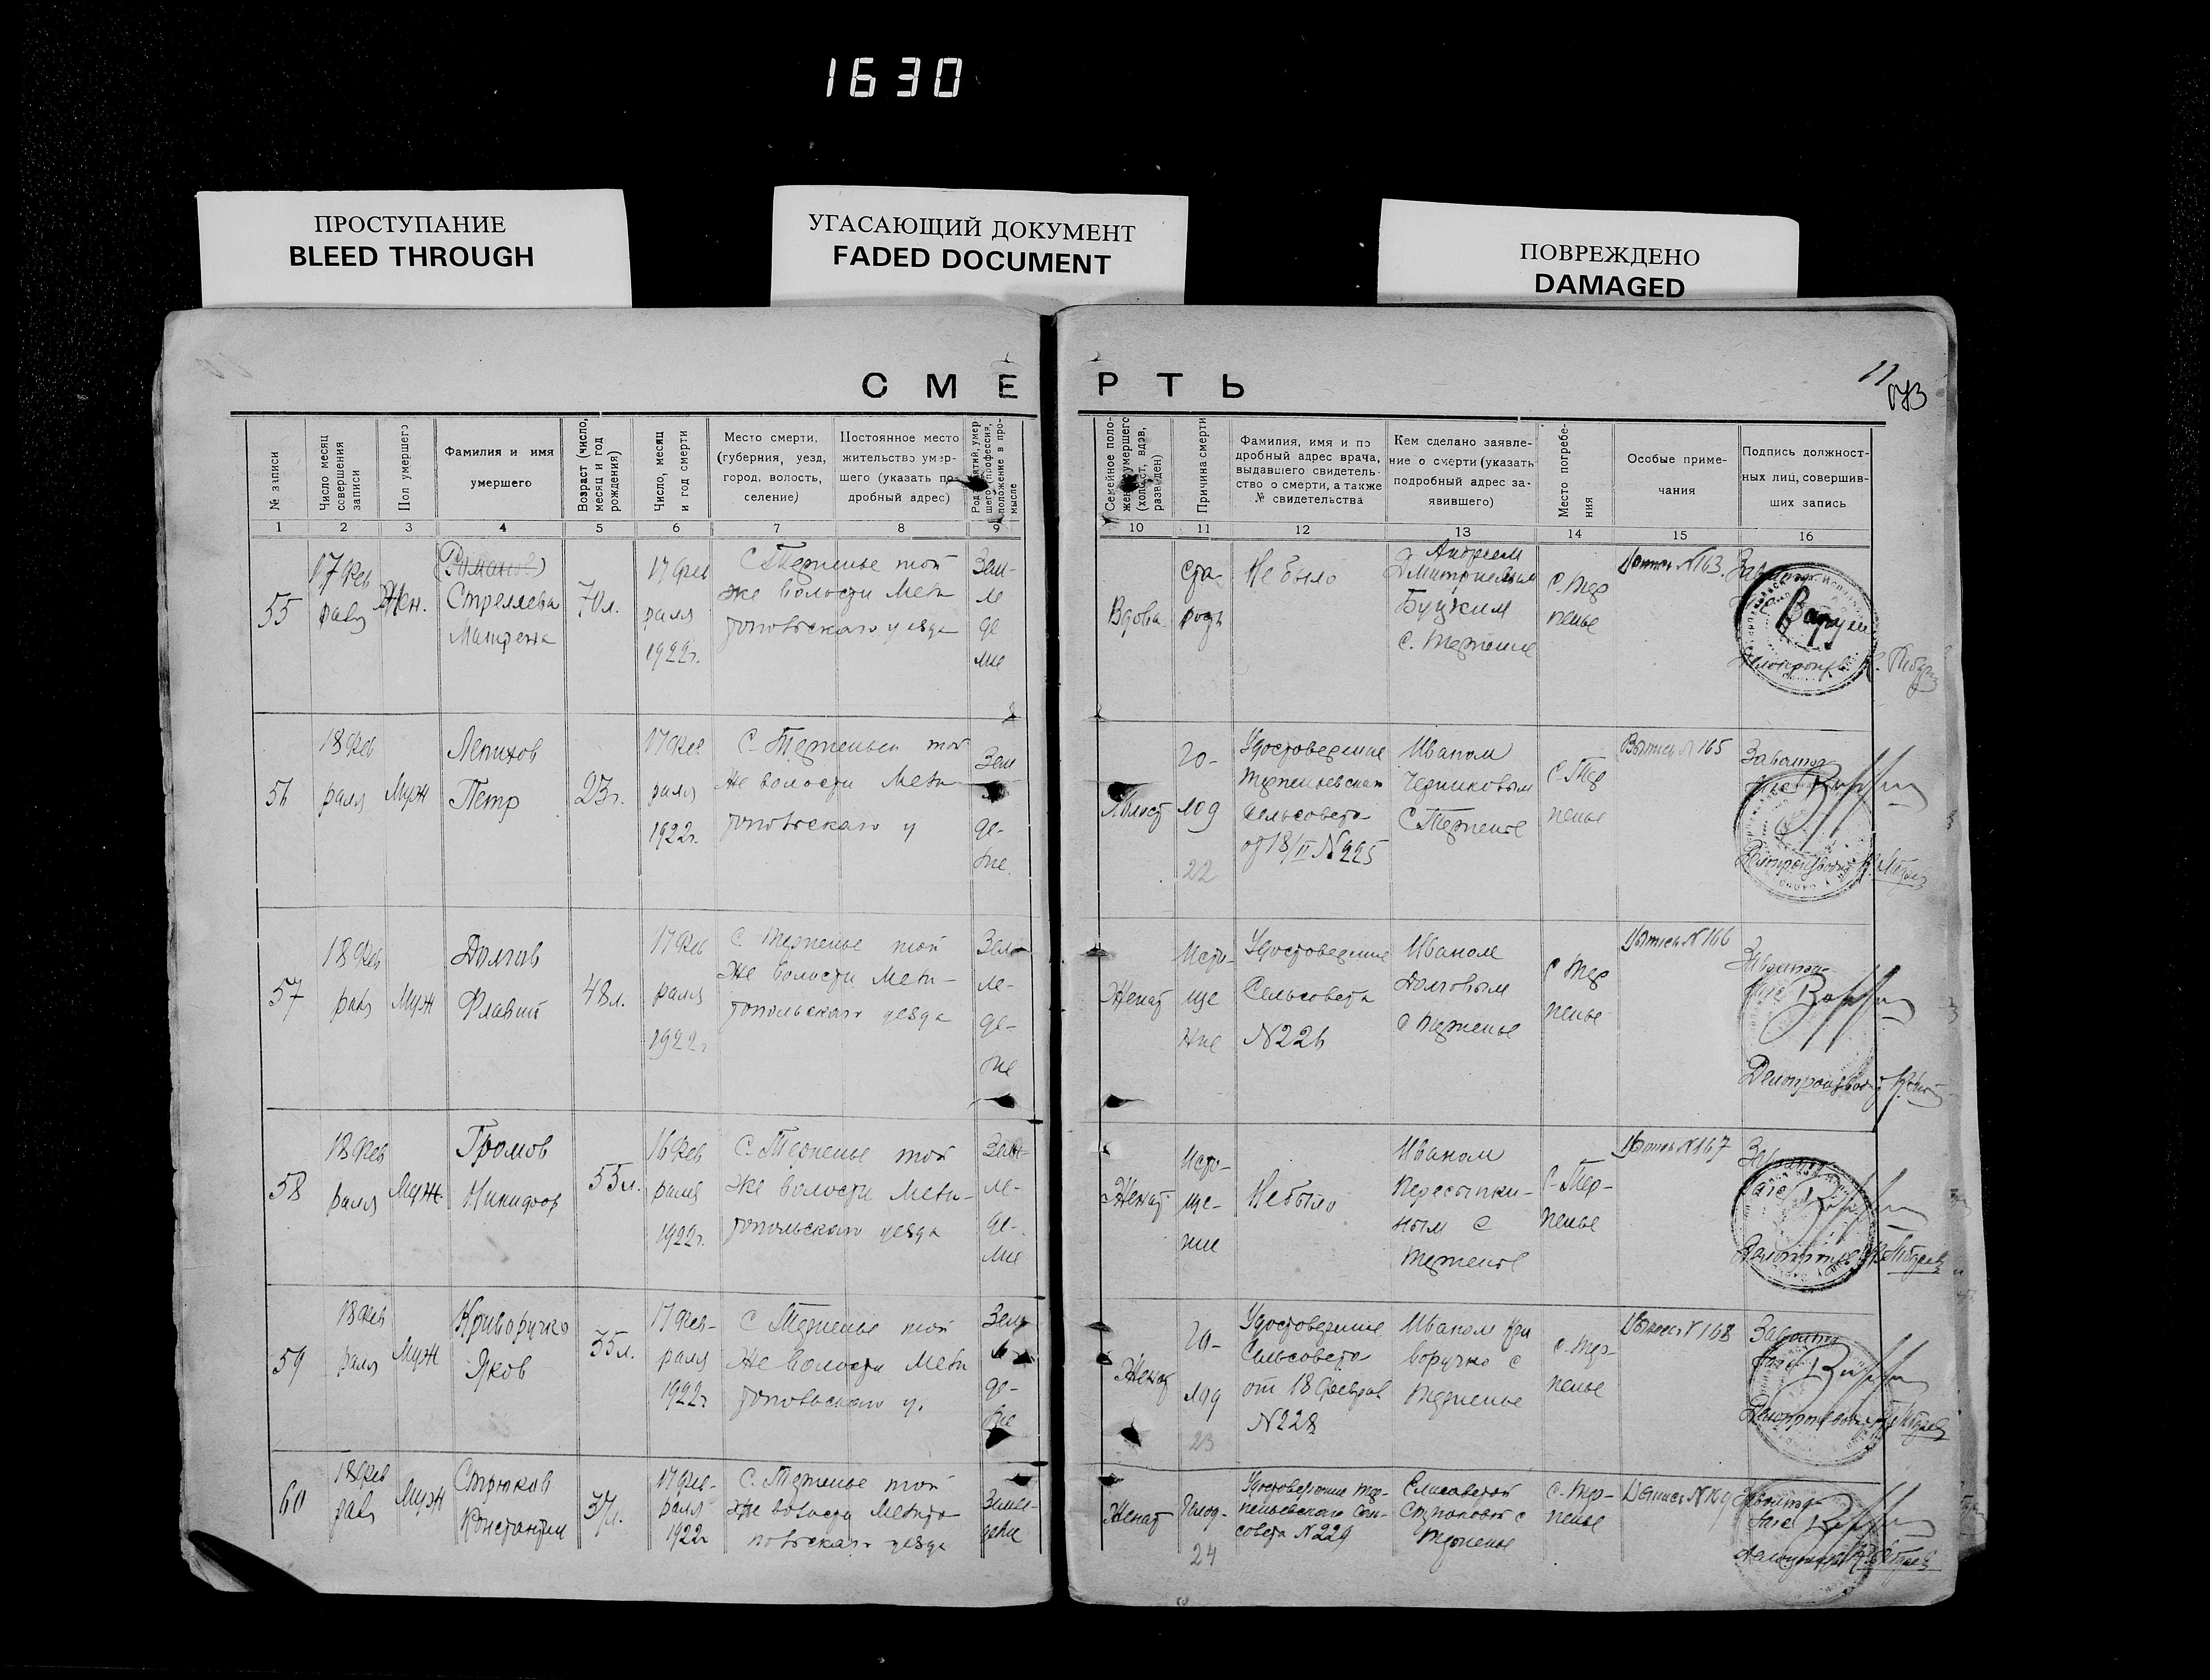 1630
ПРОСТУПАНИЕ
BLEED THROUGH
УГАСАЮЩИЙ ДОКУМЕНТ
FADED DOCUMENT
ПОВРЕЖДЕНО
DAMAGED
11
СМЕРТЬ
№ записи
Число месяц совершения записи
Пол умершего
Фамилия и имя умершего
Возраст (число, месяц и год рождения)
Число, месяц и год смерти
Место смерти, (губерния, уезд, город, волость, селение)
Постоянное место жительство умершего (указать подробный адрес)
Род занятий, умершего (профессия, положение в промысле
Семейное положение умершего (холост, вдов, разведен)
Причина смерти
Фамилия, имя и подробный адрес врача, выдавшего свидетельство о смерти, а также № свидетельства
Кем сделано заявление о смерти (указать подробный адрес заявившего)
Место погребения
Особые примечания
Подпись должностных лиц, совершивших запись
1 2 3 4 5 6 7 8 9 10 11 12 13 14 15 16
55
17 Фев
раля
Жен.
Стреляева
70 л.
17 Фев
раля
1922 г.
С. Терпенье той
же волости Мели
топольскаго уезда
Зем-
ле
де
лие
Вдова
Ста-
рость
Не было
Андреем
Дмитриевым
Буцким
С. Терпение
С. Тер
пенье
№ 163
56
18 Фев
раля
Муж
Лепихов
Петр
23 г.
17 Фев
раля
1922 г.
С. Терпенье той
же волости Мели
топольскаго у
Зем
де-
лие.
Холост
Го-
лод
22
Удостоверение
Терпеньевскаго
сельсовета
от 18/II № 225
Иваном
С. Терпенье
С. Тер
пенье
Выпись № 165
57
18 Фев
раля
Муж
Долгов
Флавий
48 л.
17 Фев
раля
1922 г
С. Терпенье той
же волости Мели-
топольскаго уезда
Зем-
ле-
де-
лие
Женат
Исто-
ще
ние
Удостоверение
Сельсовета
№ 226
Иваном
Долговым
с Терпенье
С. Тер
пенье
Выпись № 166
58
18 Фев
раля
Муж
Громов
Никифор
55 л.
16 Фев
раля
1922 г.
С. Терпенье той
же волости Мели-
топольскаго уезда
Зем-
ле-
де-
лие
Женат
Исто-
ще-
ние
Не было
Иваном
Пересыпки-
ным с
Терпенье
С. Тер-
пенье
Выпись № 167
59
18 Фев
раля
Муж
Криворучко
Яков
35 л.
17 Фев-
раля
1922 г
С. Терпенье той
же волости Мели
топольскаго у.
Зем
ле
де-
лие
Женат
Го-
лод
23
Удостоверение
Сельсовета
от 18 Феврал
№ 228
Иваном Кри
воручко с
Терпенье
С. Тер-
пенье
Выпись № 168
60
18 Фев
раля
Муж
Стрюков
Константин
37 л.
17 Фев-
раля
1922 г
С. Терпенье той
же волости Мелито
польскаго уезда
Земле-
делие
Женат
Голод-
24
Удостоверение Тер-
пеньевскаго Сель-
совета № 229
Елисаветой
Стрюковой с
Терпенье
С. Тер-
пенье
Выпись № 169